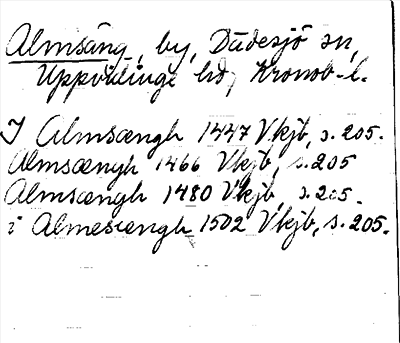 Almsäng, by, Dädesjö sn,
Uppvidinge hd, Kronob. l.
I Almsængh 1447 Vkjb, s. 205.
Almsængh 1466 Vkjb, s. 205
Almsængh 1480 Vkjb, s. 205.
i Almesængh 1502 Vkjb, s. 205.